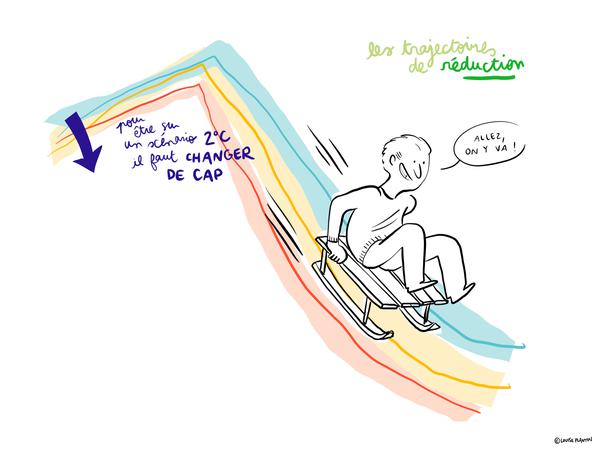 les trajectoires
de réduction
pour
être sur
un scénario 2°C
il faut CHANGER
DE CAP
ALLEZ,
ON Y VA !